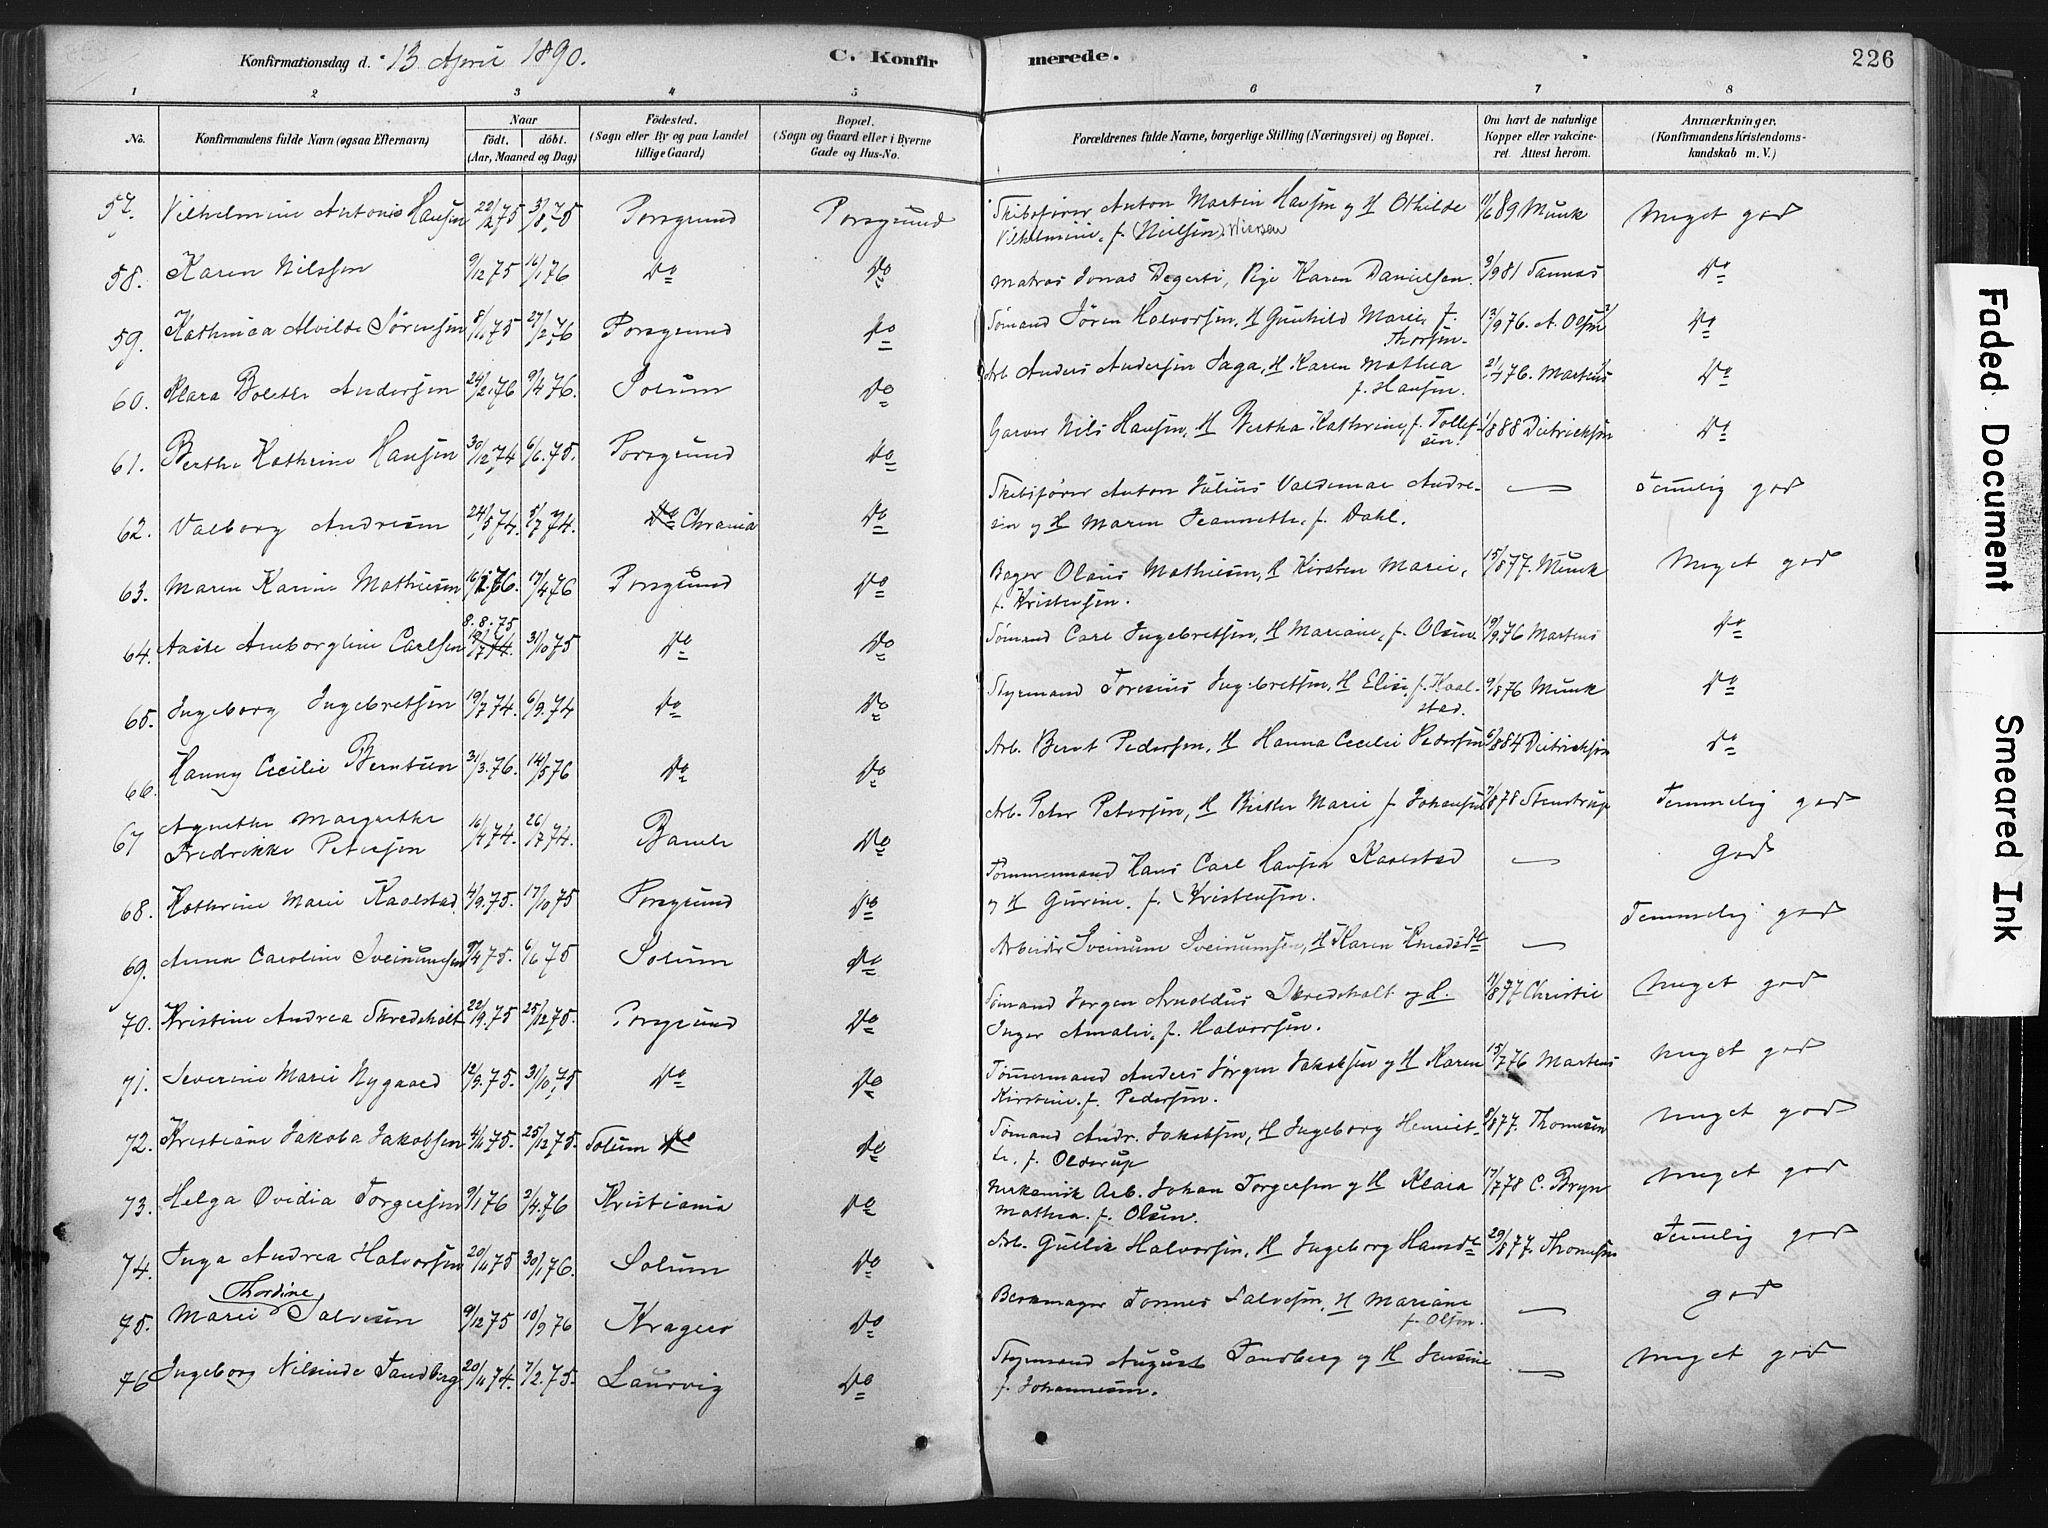 Konfirmationsdag d. 13 April 1890. C. Konfirmerede. 226
1 2 3 4 5 6 7 8
No. Konfirmandens fulde Navn (ogsaa Efternavn) Naar født. døbt. (Aar, Maaned og Dag) Fødested. (Sogn eller By og paa Landet tillige Gaard) Bopæl. (Sogn og Gaard eller i Byerne Gade og Hus-No. Forældrenes fulde Navne, borgerlige Stilling (Næringsvei) og Bopæl. Om havt de naturlige Kopper eller vakcineret. Attest herom. Anmærkninger. (Konfirmandens Kristendomskundskab m. V.)
57. Vilhelmine Antonie Hansen 22/2 75 3/8 75 Porsgrund Porsgrund Skibsfører Anton Martin Hansen og H Othilde 11/6 89 Munk Meget god
Vilhelmine, f. (Nielsen) Wiersen
58. Karen Nilssen 9/12 75 16/1 76 Do Do Matros Jonas Degerti, Pige Karen Danielsen. 3/9 81 Do
59. Kathinca Alvilde Sørensen 8/11 75 27/2 76 Porsgrund Do Sømand Søren Halvorsen, H Gunhild Marie, f. 13/9 76. A. Olsen Do
Thorsen.
60. Klara Bolette Andersen 24/2 76 9/4 76. Solum Do Arb. Anders Andersen Saga, H. Karen Mathea 76. Martens Do
f. Hansen.
61. Berthe Kathrine Hansen 30/12 74 6/6. 75. Porsgrund Do Garver Nils Hansen, H Bertha Kathrine, f. Tollef- 1/8 88 Dietrichson Do
sen.
62. Valborg Andresen 24/5 74. 5/7 74. Do Chrania Do Skibsfører Anton Julius Valdemar Andre- — Temelig god
sen og H Maren Jeannette, f. Dahl.
63. Maren Karine Mathiesen 16/1 76. 17/4 76 Porsgrund Do Bager Olaus Mathiesen, H Kirsten Marie, 15/8 77. Munk Meget god
f. Kristensen.
8.8.75
64. Aaste Amborgline Carlsen 19/7 74. 31/10 75 Do Do Sømand Carl Ingebretsen, H Mariane, f. Olsen. 19/9 76 Martens Do
65. Ingeborg Ingebretsen 19/7 74. 6/9. 74 Do Do Styrmand Toresius Ingebretsen, H Elise, f. Kaal- 9/8 76 Munk Do
stad.
66. Hanny Cecilie Berntsen 31/3. 76. 14/5 76 Do Do Arb. Bernt Pedersen, H Hanna Cecilie Pedersen 6/8 84 Dietrichson Do
67 Agnethe Margrethe 16/4 74. 26/7 74. Bamle Do Arb. Peter Petersen, H Birthe Marie f. Johansen 7/8 78 Stenstrup Temmelig god
Fredrikke Petersen
68. Kathrine Marie Kaalstad. 4/9. 75. 17/10 75 Porsgrund Do Tømmermand Hans Carl Hansen Kaalstad — god
og H Gurine, f. Kristensen.
69. Anna Caroline Sveinumsen 9/4 75. 6/6 75 Solum Do Arbeider Sveinume Sveinumsen, H Karen — Temmelig god
70. Kristine Andrea Skredsholt 22/9. 75 25/12 75. Porsgrund Do Sømand Jørgen Arnoldus Skredsholt og H. 11/8 77 Christie Meget god
Inger Amalie, f. Halvorsen.
71. Severine Marie Nygaard 12/9. 75. 31/10, 75 Do Do Tømmermand Anders Jørgen Jakobsen og H Karen 15/7 76 Martens Meget god
Kirstine. f. Pedersen.
72. Kristiane Jakoba Jakobsen 4/11 75. 25/12 75. Solum Do Do Sømand Andr. Jakobsen, H Ingeborg Henriet- 8/8 77. Thomesen Meget god
te. f. Olderup
73. Helga Ovidia Torgersen 9/1 76 2/4. 76 Kristiania Do Mekanisk Arb. Johan Torgersen og H Klara 17/7 78 C. Bryn Meget god
Mathea. f. Olsen.
74. Inga Andrea Halvorsen 20/11 75 30/1 76. Solum Do Arb. Gullik Halvorsen, H Ingeborg Hansd. 20/8 77. Thomesen Temelig god
Thordine
75. Marie Salvesen 9/12 75 10/9 76 Kragerø Do Bernmager Tønnes Salvesen, H Mariane — god
f. Olsen.
76 Ingeborg Nilsinde Sandberg 20/11 74. 7/2. 75. Laurvig Do Styrmand August Sandberg og H Jensine — Meget god
f. Johannesen.
Faded Document
Smeared Ink